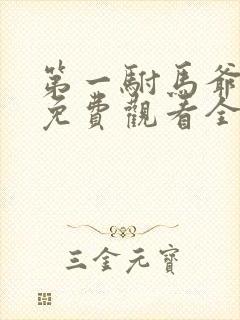 第一駙馬爺
免費觀看全
三金元寶